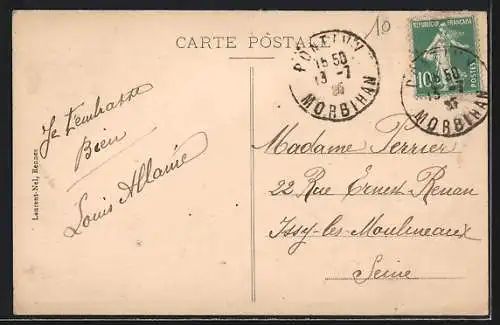 10
CARTE POSTALE
PONTIVY
15 50
13 -7
MORBIHAN
REPUBLIQUE FRANÇAISE
10
POSTES
15 50
13 -7
MORBIHAN
Je t'embrasse
Bien
Louis Allaire
Laurent-Nel, Rennes
Madame Perrier
22 Rue Ernest Renan
Issy-les-Moulineaux
Seine